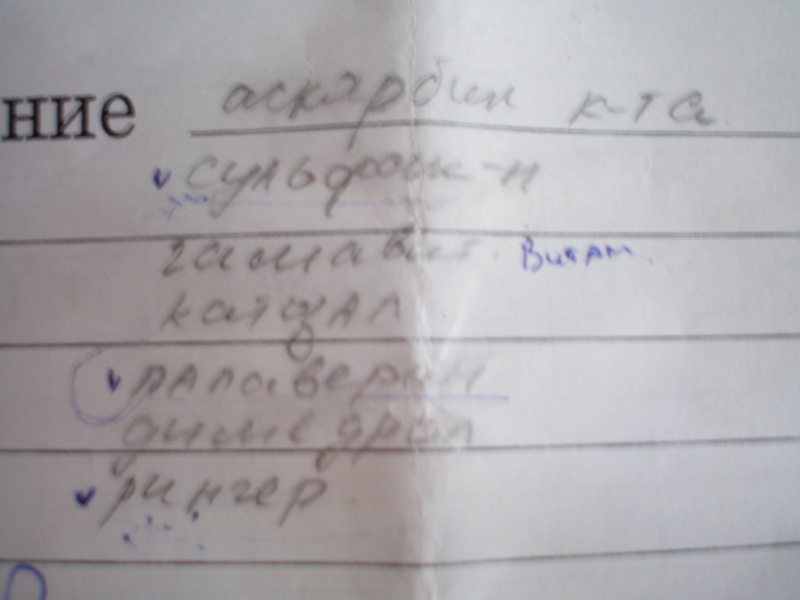 ние аскарбин к-та
сульфокам-н
гамавит. Витам.
катозал
папаверин
димедрол
рингер